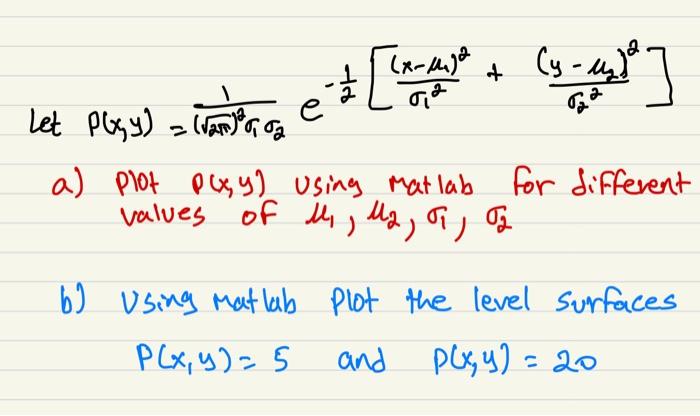 Let P(x,y) = 1/((√2π)² σ₁ σ₂) e^(-1/2 [(x-μ₁)²/σ₁² + (y-μ₂)²/σ₂²])
a) Plot P(x,y) Using Matlab for different
values of μ₁, μ₂, σ₁, σ₂
b) Using Matlab Plot the level surfaces
P(x,y) = 5 and P(x,y) = 20